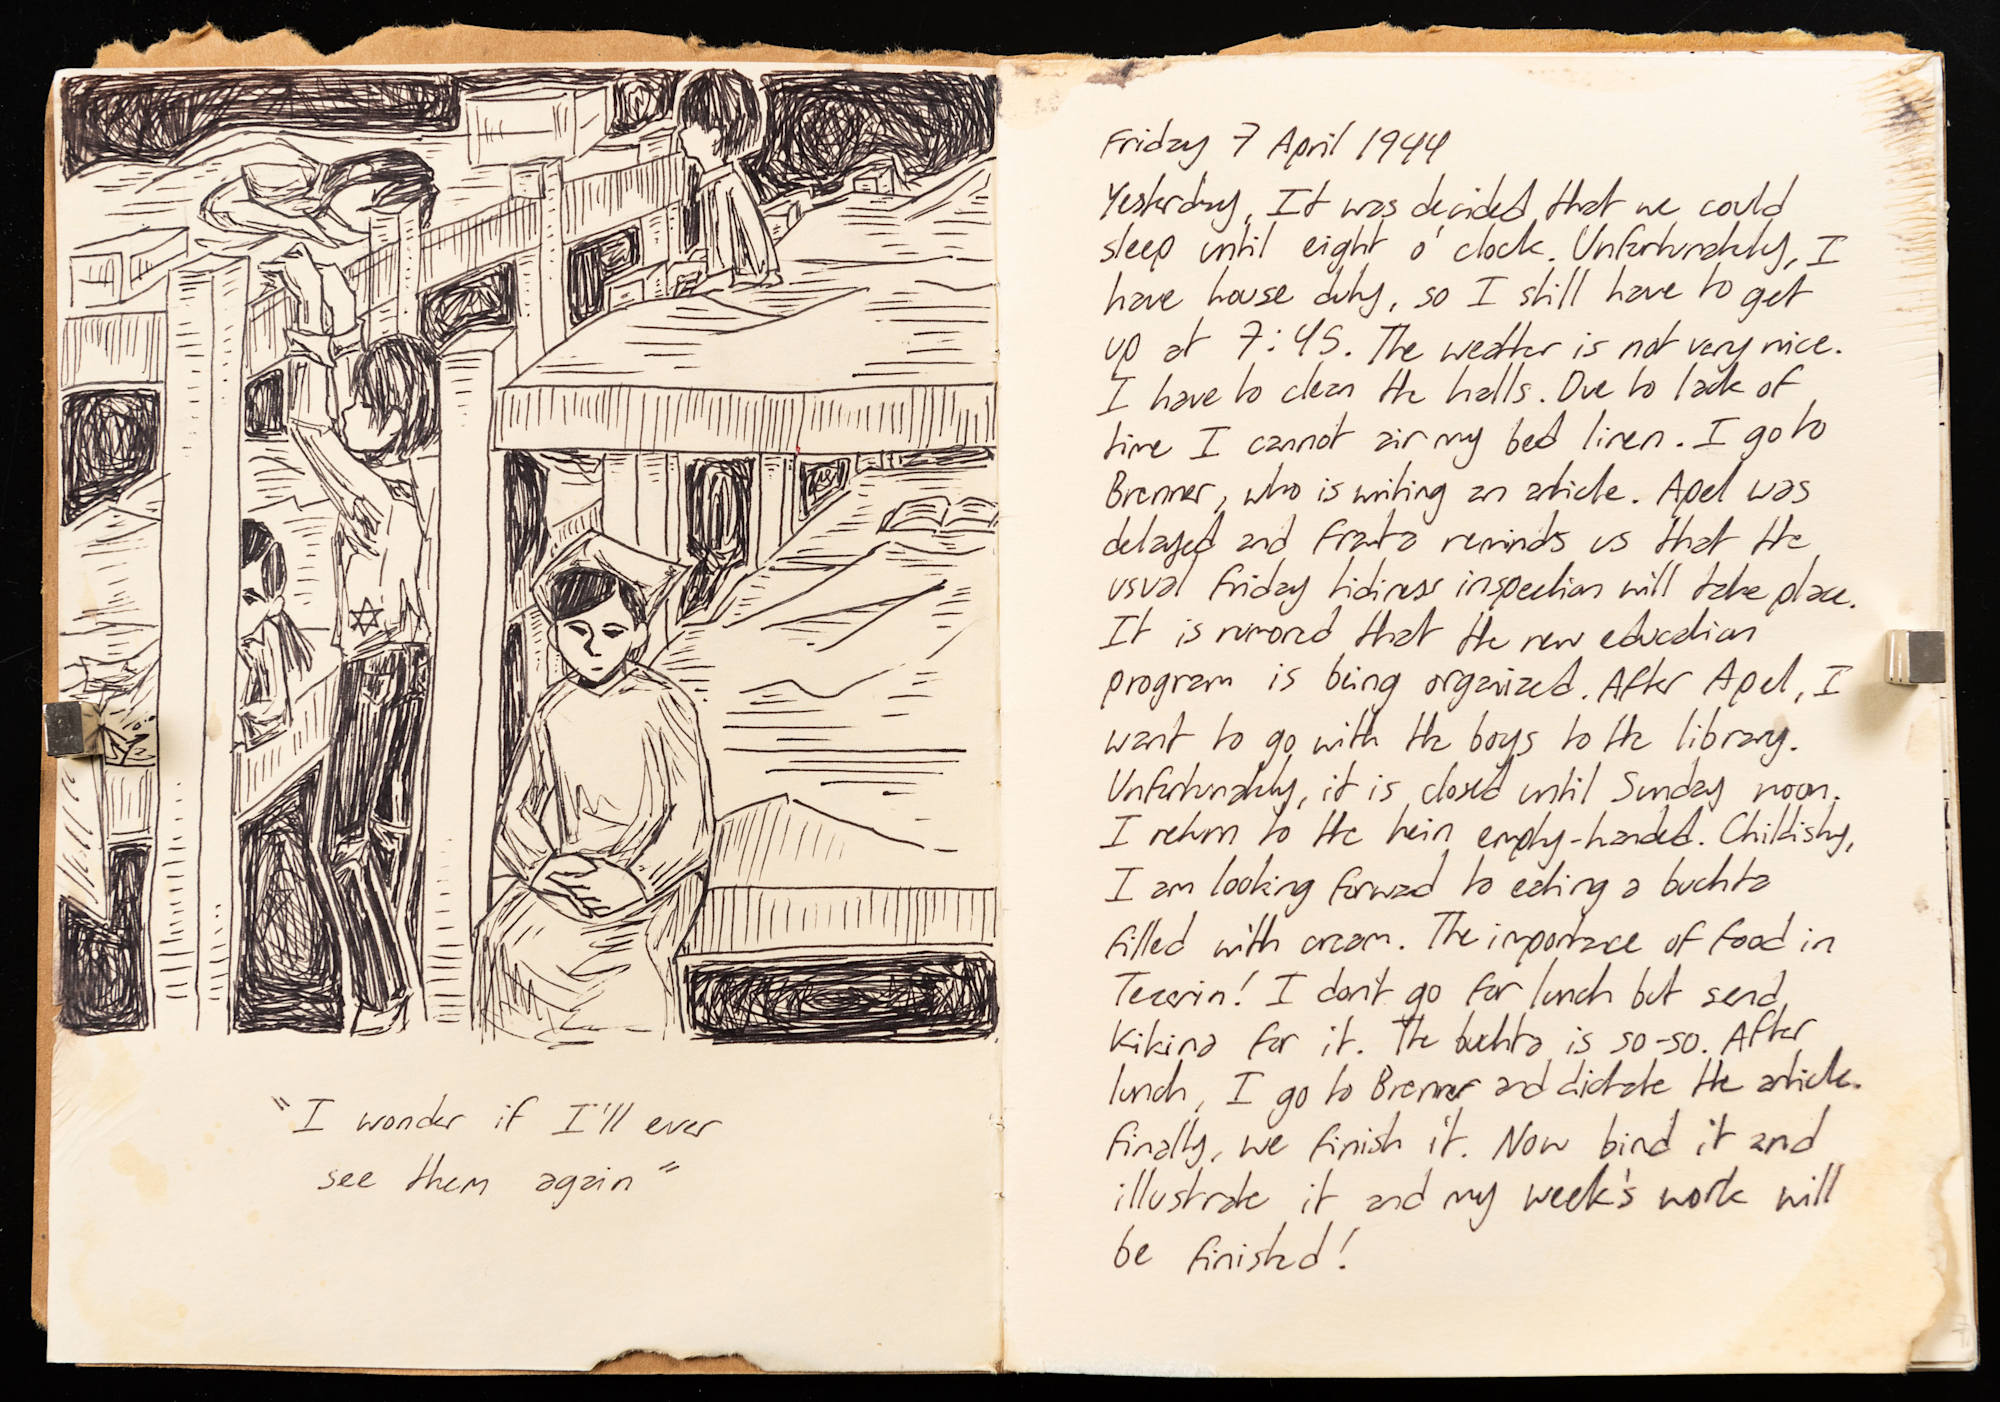 "I wonder if I'll ever
see them again"
Friday 7 April 1944
Yesterday, It was decided that we could
sleep until eight o' clock. Unfortunately, I
have house duty, so I still have to get
up at 7:45. The weather is not very nice.
I have to clean the halls. Due to lack of
time I cannot air my bed linen. I go to
Brenner, who is writing an article. Apel was
delayed and Franta reminds us that the
usual Friday tidiness inspection will take place.
It is rumored that the new education
program is being organized. After Apel, I
want to go with the boys to the library.
Unfortunately, it is closed until Sunday noon.
I return to the heim empty-handed. Childishly,
I am looking forward to eating a buchta
filled with cream. The importance of food in
Terezin! I don't go for lunch but send
Kikina for it. The buchta is so-so. After
lunch, I go to Brenner and dictate the article.
Finally, we finish it. Now bind it and
illustrate it and my week's work will
be finished!